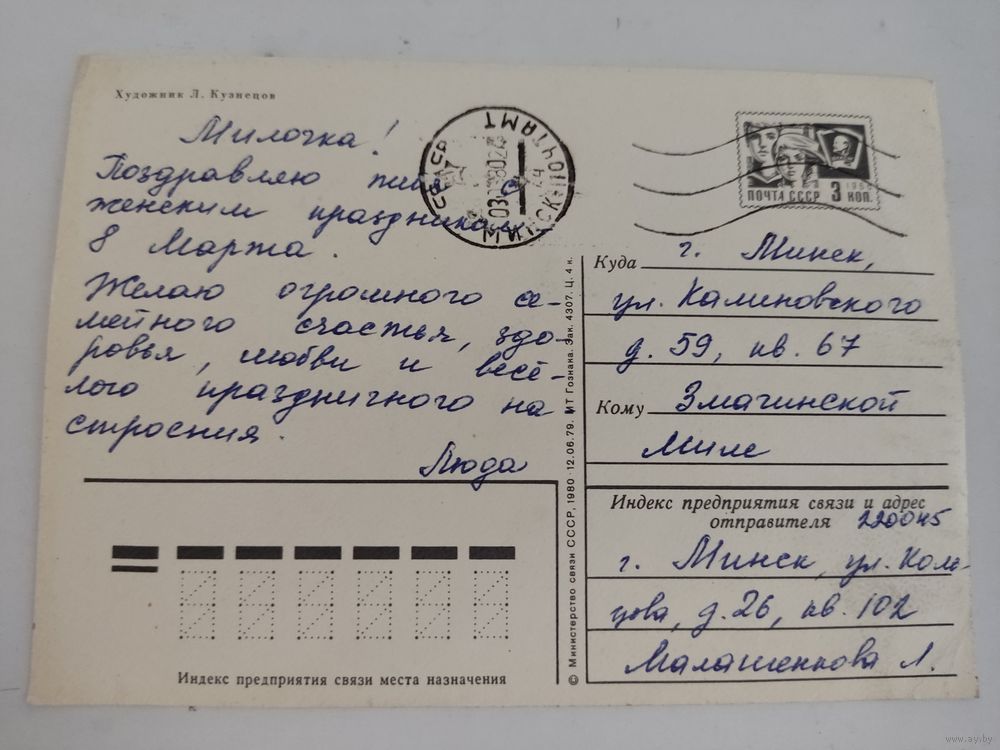 Художник Л. Кузнецов
Милочка!
Поздравляю
женским праздником
8 Марта.
Желаю огромного се-
мейного счастья, здо-
ровья, любви и весё-
лого праздничного на
строения.
Люда
МИНСК ПОЧТАМТ
ПОЧТА СССР 3 КОП.
Куда г. Минск,
ул. Калиновского
д. 59, кв. 67
Кому Змачинской
Миле
Индекс предприятия связи и адрес
отправителя 220045
г. Минск, ул. Коль-
цова, д. 26, кв. 102
Малашенкова Л.
Индекс предприятия связи места назначения
© Министерство связи СССР, 1980 · 12.06.79. МТ Гознака. Зак. 4307. Ц. 4 к.
www.ay.by